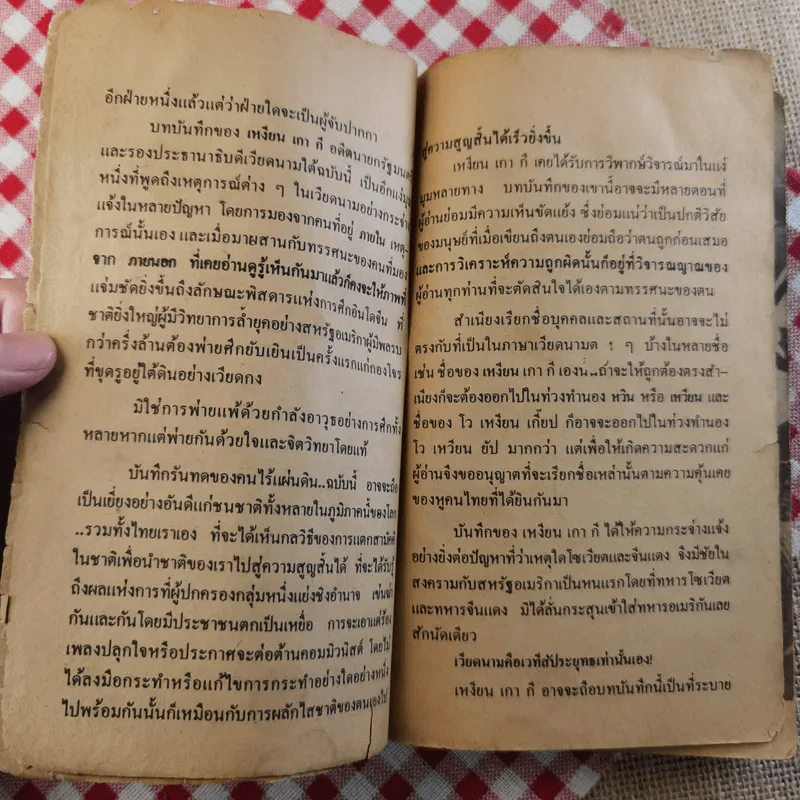 อีกฝ่ายหนึ่งแล้วแต่ว่าฝ่ายใดจะเป็นผู้จับปากกา
บทบันทึกของ เหงียน เกา กี อดีตนายกรัฐมนตรี
และรองประธานาธิบดีเวียดนามใต้ฉบับนี้ เป็นอีกแง่มุม
หนึ่งที่พูดถึงเหตุการณ์ต่าง ๆ ในเวียดนามอย่างกระจ่าง
แจ้งในหลายปัญหา โดยการมองจากคนที่อยู่ ภายใน เหตุ-
การณ์นั้นเอง และเมื่อมาผสานกับทรรศนะของคนที่มอง
จาก ภายนอก ที่เคยอ่านดูรู้เห็นกันมาแล้วก็คงจะให้ภาพที่
แจ่มชัดยิ่งขึ้นถึงลักษณะพิสดารแห่งการศึกอินโดจีน ที่
ชาติยิ่งใหญ่ผู้มีวิทยาการล้ำยุคอย่างสหรัฐอเมริกาผู้มีพลรบ
กว่าครึ่งล้านต้องพ่ายศึกยับเยินเป็นครั้งแรกแก่กองโจร
ที่ขุดรูอยู่ใต้ดินอย่างเวียดกง
มิใช่การพ่ายแพ้ด้วยกำลังอาวุธอย่างการศึกทั้ง
หลายหากแต่พ่ายกันด้วยใจและจิตวิทยาโดยแท้
บันทึกรันทดของคนไร้แผ่นดิน..ฉบับนี้ อาจจะถือ
เป็นเยี่ยงอย่างอันดีแก่ชนชาติทั้งหลายในภูมิภาคนี้ของโลก
..รวมทั้งไทยเราเอง ที่จะได้เห็นกลวิธีของการแตกสามัคคี
ในชาติเพื่อนำชาติของเราไปสู่ความสูญสิ้นได้ ที่จะได้รับรู้
ถึงผลแห่งการที่ผู้ปกครองกลุ่มหนึ่งแย่งชิงอำนาจ เข่นฆ่า
กันและกันโดยมีประชาชนตกเป็นเหยื่อ การจะเอาแต่ร้อง
เพลงปลุกใจหรือประกาศจะต่อต้านคอมมิวนิสต์ โดยไม่
ได้ลงมือกระทำหรือแก้ไขการกระทำอย่างใดอย่างหนึ่ง
ไปพร้อมกันนั้นก็เหมือนกับการผลักไสชาติของตนเองไป
สู่ความสูญสิ้นได้เร็วยิ่งขึ้น
เหงียน เกา กี เคยได้รับการวิพากษ์วิจารณ์มาในแง่
มุมหลายทาง บทบันทึกของเขานี้อาจจะมีหลายตอนที่
ผู้อ่านย่อมมีความเห็นขัดแย้ง ซึ่งย่อมแน่ว่าเป็นปกติวิสัย
ของมนุษย์ที่เมื่อเขียนถึงตนเองย่อมถือว่าตนถูกก่อนเสมอ
และการวิเคราะห์ความถูกผิดนั้นก็อยู่ที่วิจารณญาณของ
ผู้อ่านทุกท่านที่จะตัดสินใจได้เองตามทรรศนะของตน
สำเนียงเรียกชื่อบุคคลและสถานที่นั้นอาจจะไม่
ตรงกับที่เป็นในภาษาเวียดนามต ๆ บ้างในหลายชื่อ
เช่น ชื่อของ เหงียน เกา กี เองน..ถ้าจะให้ถูกต้องตรงสำ-
เนียงก็จะต้องออกไปในท่วงทำนอง หวิน หรือ เหวียน และ
ชื่อของ โว เหงียน เกี๊ยป ก็อาจจะออกไปในท่วงทำนอง
โว เหวียน ยัป มากกว่า แต่เพื่อให้เกิดความสะดวกแก่
ผู้อ่านจึงขออนุญาตที่จะเรียกชื่อเหล่านั้นตามความคุ้นเคย
ของหูคนไทยที่ได้ยินกันมา
บันทึกของ เหงียน เกา กี ได้ให้ความกระจ่างแจ้ง
อย่างยิ่งต่อปัญหาที่ว่าเหตุใดโซเวียตและจีนแดง จึงมีชัยใน
สงครามกับสหรัฐอเมริกาเป็นหนแรกโดยที่ทหารโซเวียต
และทหารจีนแดง มิได้ลั่นกระสุนเข้าใส่ทหารอเมริกันเลย
สักนัดเดียว
เวียดนามคือเวทีสัประยุทธเท่านั้นเอง!
เหงียน เกา กี อาจจะถือบทบันทึกนี้เป็นที่ระบาย